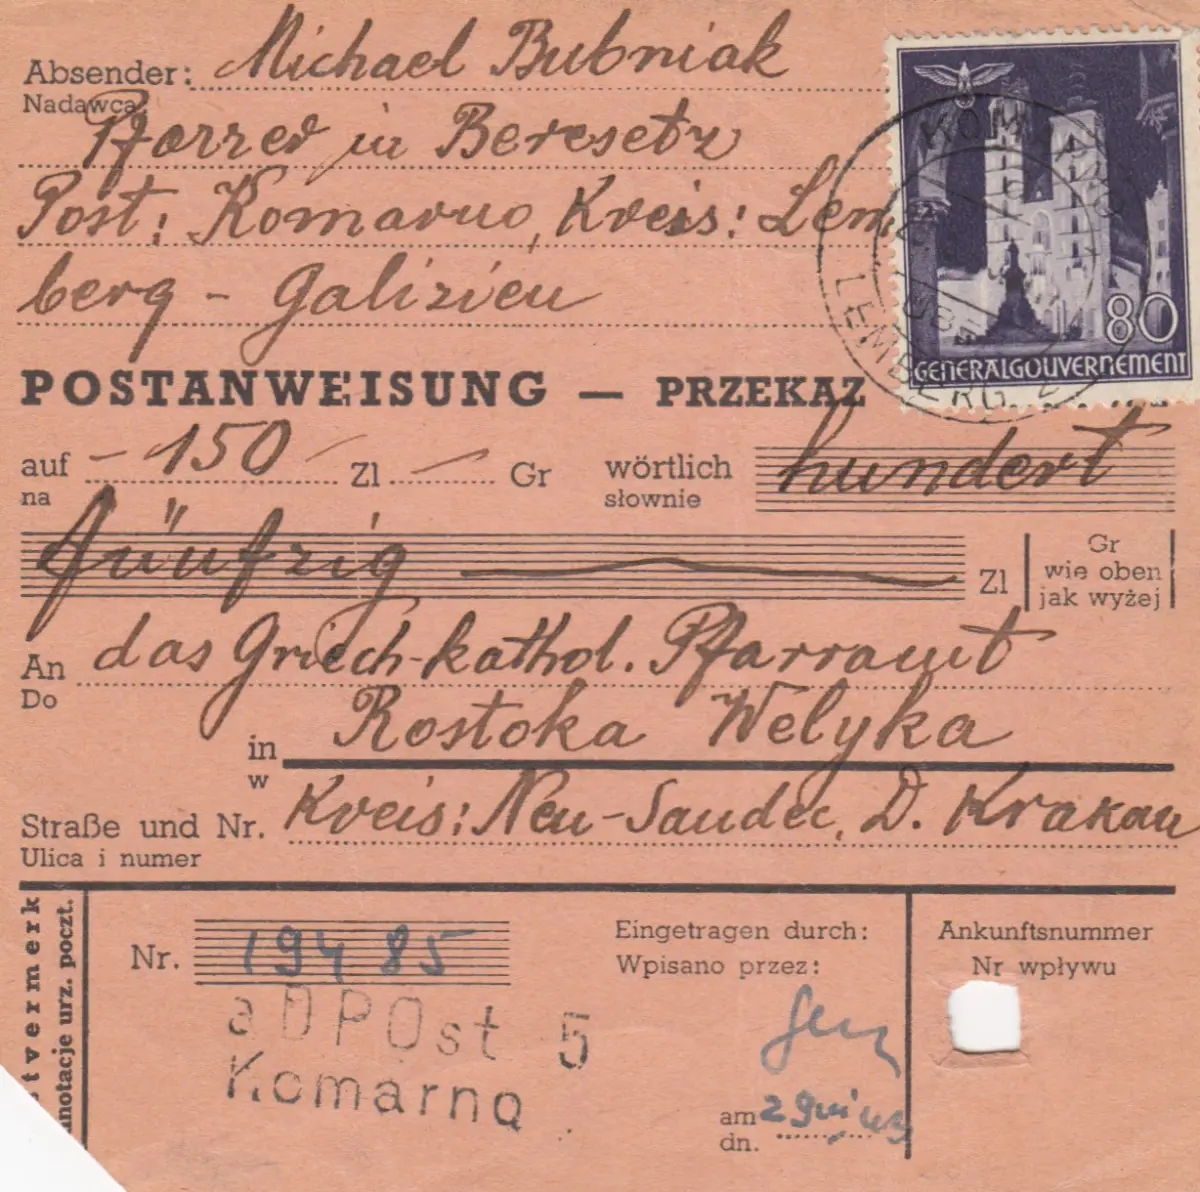 Absender: Michael Bubniak
Nadawca:
Pfarrer in Beresetz
Post: Komarno, Kreis: Lem
berg - Galizien
80
GENERALGOUVERNEMENT
LEMBERG
POSTANWEISUNG — PRZEKAZ
auf - 150 Zl — Gr wörtlich hundert
na słownie
fünfzig Zl
Gr
wie oben
jak wyżej
An das Griech-kathol. Pfarramt
Do
in Rostoka Welyka
w
Straße und Nr. Kreis: Neu-Sandec, D. Krakau
Ulica i numer
tvermerk
notacje urz. poczt.
Nr. 19485
Eingetragen durch:
Wpisano przez:
Ankunftsnummer
Nr wpływu
aDPOst 5
Komarno
am
dn.